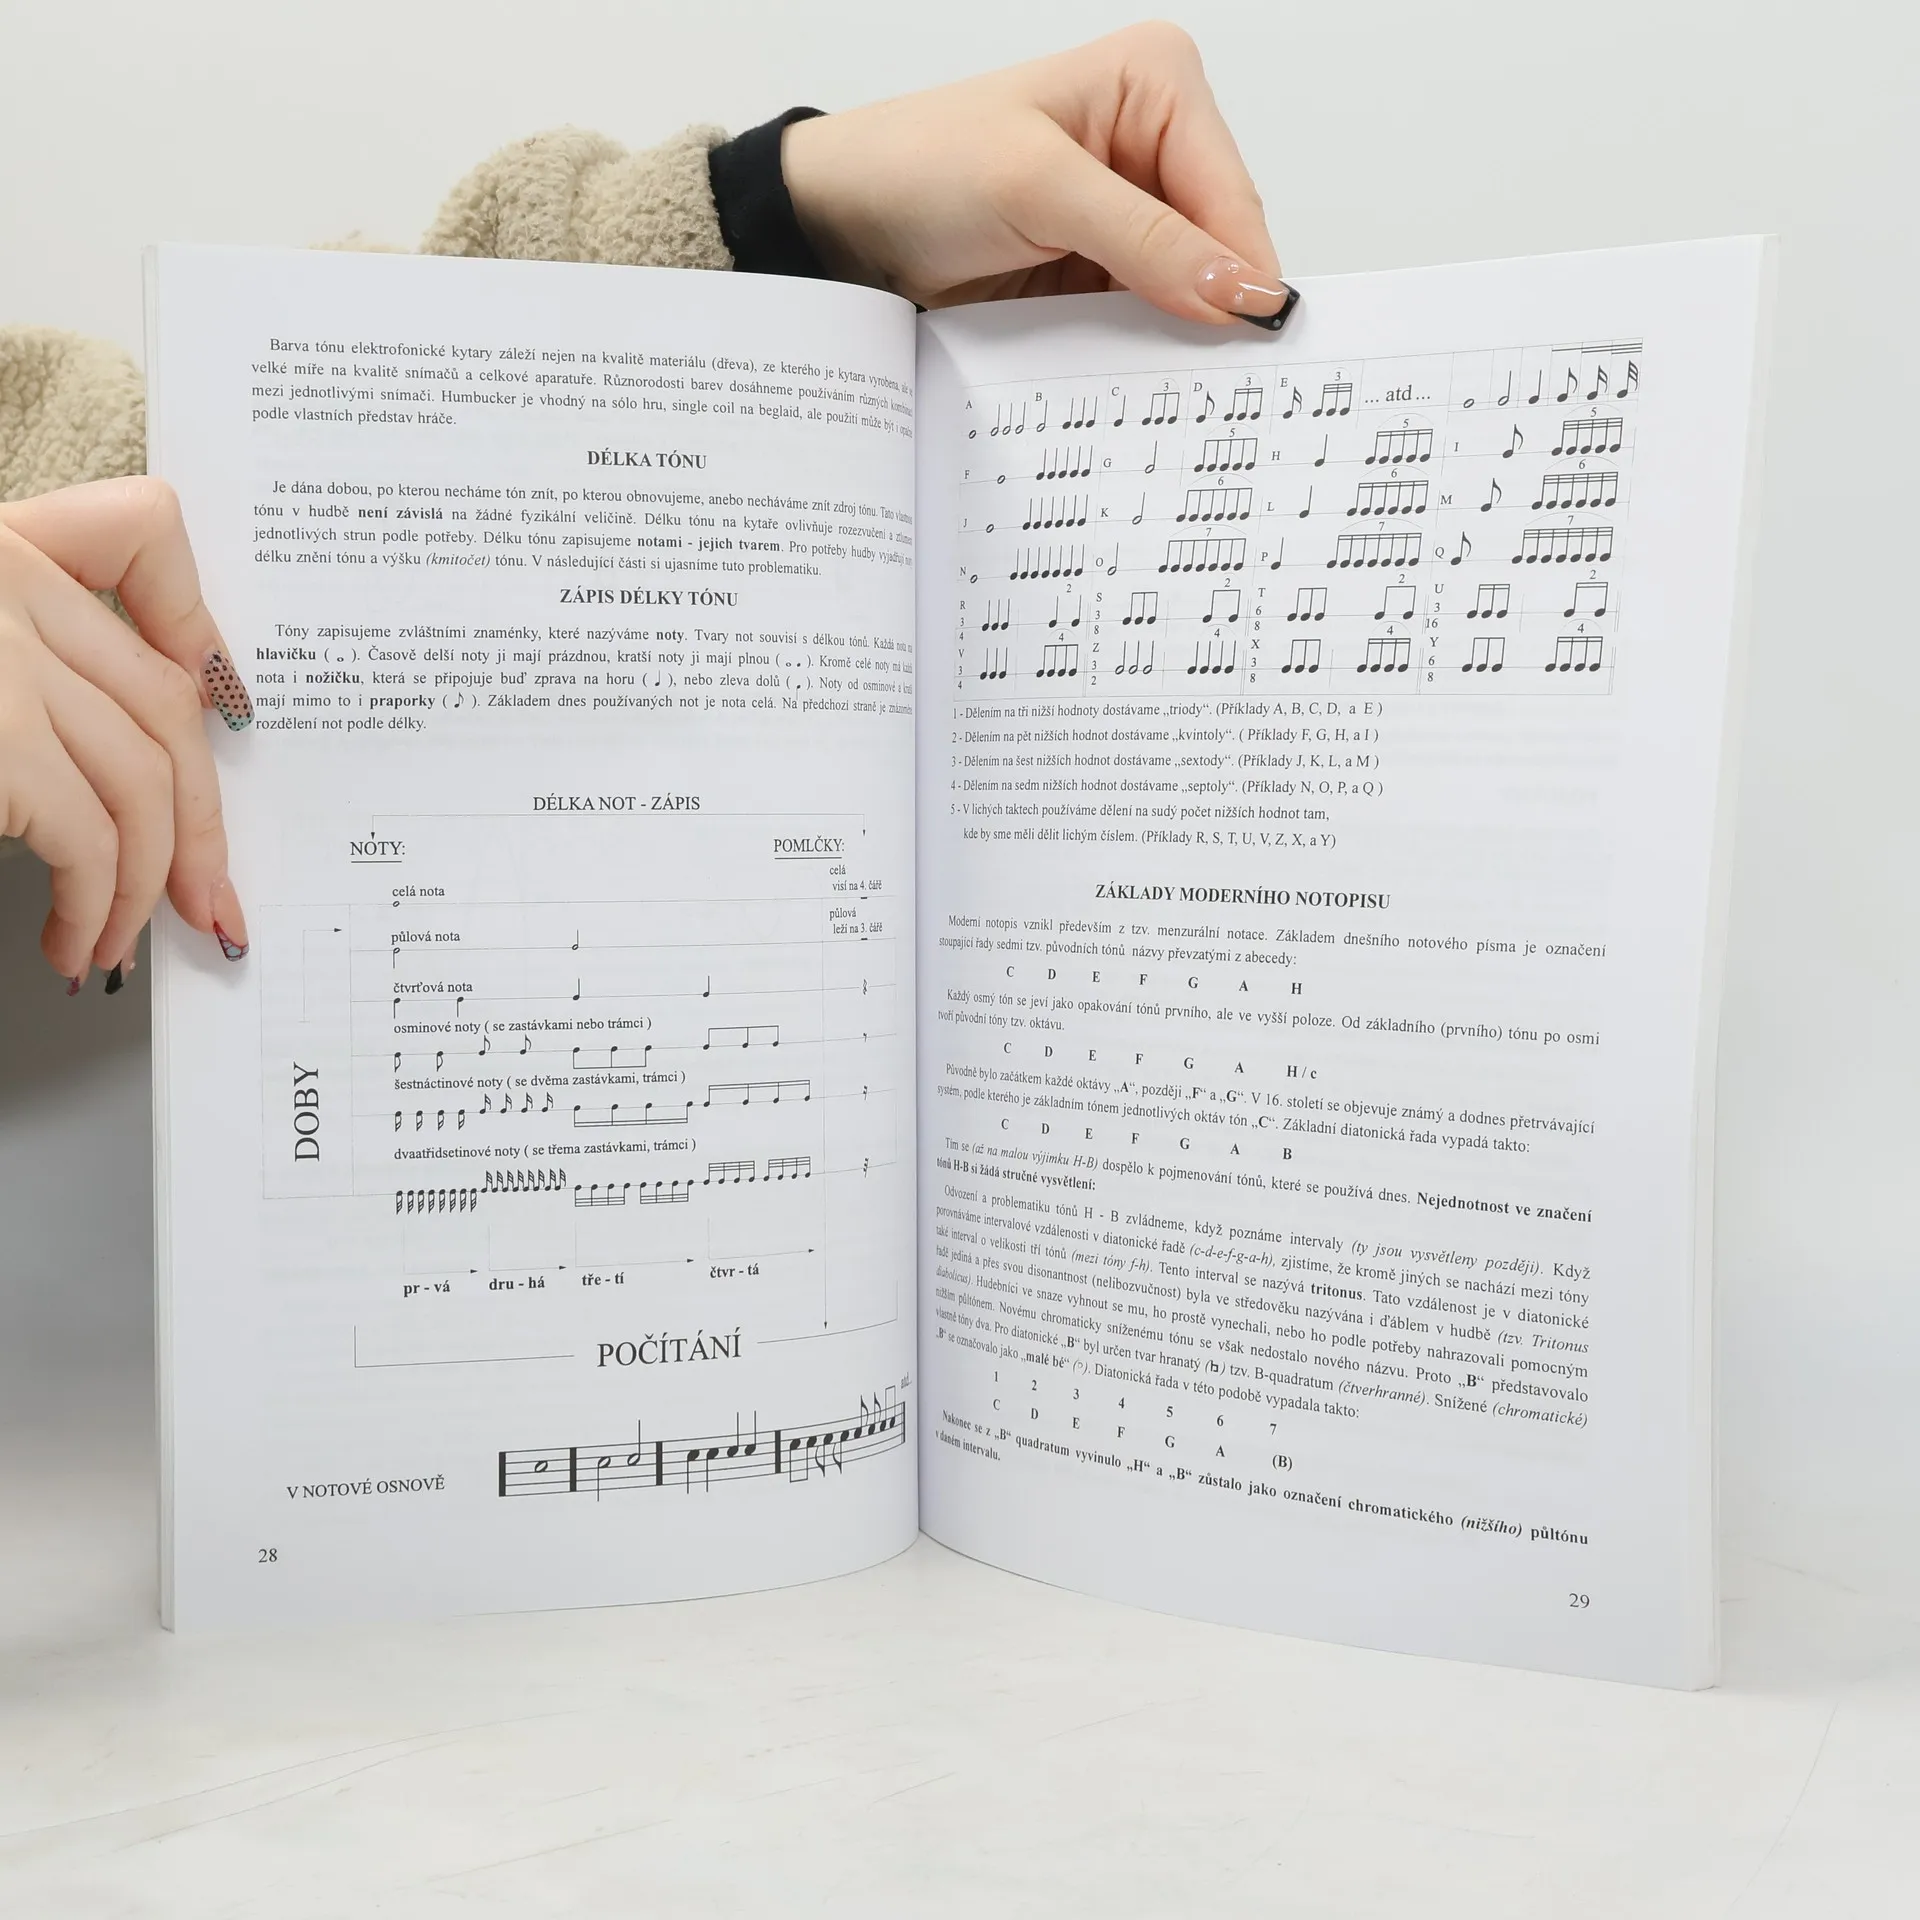 Barva tónu elektrofonické kytary záleží nejen na kvalitě materiálu (dřeva), ze kterého je kytara vyrobena, ale ve
velké míře na kvalitě snímačů a celkové aparatuře. Různorodosti barev dosáhneme používáním různých
mezi jednotlivými snímači. Humbucker je vhodný na sólo hru, single coil na beglaid, ale použití může být i
podle vlastních představ hráče.
DÉLKA TÓNU
Je dána dobou, po kterou necháme tón znít, po kterou obnovujeme, anebo necháváme znít zdroj tónu. Tato
tónu v hudbě není závislá na žádné fyzikální veličině. Délku tónu na kytaře ovlivňuje rozezvučení a
jednotlivých strun podle potřeby. Délku tónu zapisujeme notami - jejich tvarem. Pro potřeby hudby
délku znění tónu a výšku (kmitočet) tónu. V následující části si ujasníme tuto problematiku.
ZÁPIS DÉLKY TÓNU
Tóny zapisujeme zvláštními znaménky, které nazýváme noty. Tvary not souvisí s délkou tónů. Každá nota
hlavičku ( ). Časově delší noty ji mají prázdnou, kratší noty ji mají plnou ( ). Kromě celé noty má
nota i nožičku, která se připojuje buď zprava na horu ( ♩ ), nebo zleva dolů ( ). Noty od osminové a
mají mimo to i praporky ( ♪ ). Základem dnes používaných not je nota celá. Na předchozí straně je
rozdělení not podle délky.
DÉLKA NOT - ZÁPIS
NOTY:
POMLČKY:
celá nota
celá
visí na 4. čáře
půlová nota
půlová
leží na 3. čáře
čtvrťová nota
osminové noty ( se zastávkami nebo trámci )
šestnáctinové noty ( se dvěma zastávkami, trámci )
dvaatřidsetinové noty ( se třema zastávkami, trámci )
DOBY
pr - vá dru - há tře - tí čtvr - tá
POČÍTÁNÍ
atd...
V NOTOVÉ OSNOVĚ
28
A B C 3 D 3 E 3 ... atd ...
F G 5 H 5 I 5
J K 6 L 6 M 6
N O 7 P 7 Q 7
R 3 4 2 S 3 8 2 T 6 8 2 U 3 16 2
V 3 4 4 Z 3 2 4 X 3 8 4 Y 6 8 4
1 - Dělením na tři nižší hodnoty dostávame „triody“. (Příklady A, B, C, D, a E )
2 - Dělením na pět nižších hodnot dostávame „kvintoly“. ( Příklady F, G, H, a I )
3 - Dělením na šest nižších hodnot dostávame „sextody“. (Příklady J, K, L, a M )
4 - Dělením na sedm nižších hodnot dostávame „septoly“. (Příklady N, O, P, a Q )
5 - V lichých taktech používáme dělení na sudý počet nižších hodnot tam,
kde by sme měli dělit lichým číslem. (Příklady R, S, T, U, V, Z, X, a Y)
ZÁKLADY MODERNÍHO NOTOPISU
Moderní notopis vznikl především z tzv. menzurální notace. Základem dnešního notového písma je označení
stoupající řady sedmi tzv. původních tónů názvy převzatými z abecedy:
C D E F G A H
Každý osmý tón se jeví jako opakování tónů prvního, ale ve vyšší poloze. Od základního (prvního) tónu po osmi
tvoří původní tóny tzv. oktávu.
C D E F G A H / c
Původně bylo začátkem každé oktávy „A“, později „F“ a „G“. V 16. století se objevuje známý a dodnes přetrvávající
systém, podle kterého je základním tónem jednotlivých oktáv tón „C“. Základní diatonická řada vypadá takto:
C D E F G A B
Tím se (až na malou výjimku H-B) dospělo k pojmenování tónů, které se používá dnes. Nejednotnost ve značení
tónů H-B si žádá stručné vysvětlení:
Odvození a problematiku tónů H - B zvládneme, když poznáme intervaly (ty jsou vysvětleny později). Když
porovnáváme intervalové vzdálenosti v diatonické řadě (c-d-e-f-g-a-h), zjistíme, že kromě jiných se nachází mezi tóny
také interval o velikosti tří tónů (mezi tóny f-h). Tento interval se nazývá tritonus. Tato vzdálenost je v diatonické
řadě jediná a přes svou disonantnost (nelibozvučnost) byla ve středověku nazývána i ďáblem v hudbě (tzv. Tritonus
diabolicus). Hudebníci ve snaze vyhnout se mu, ho prostě vynechali, nebo ho podle potřeby nahrazovali pomocným
nižším půltónem. Novému chromaticky sníženému tónu se však nedostalo nového názvu. Proto „B“ představovalo
vlastně tóny dva. Pro diatonické „B“ byl určen tvar hranatý ( ) tzv. B-quadratum (čtverhranné). Snížené (chromatické)
„B“ se označovalo jako „malé bé“ ( ). Diatonická řada v této podobě vypadala takto:
1 2 3 4 5 6 7
C D E F G A (B)
Nakonec se z „B“ quadratum vyvinulo „H“ a „B“ zůstalo jako označení chromatického (nižšího) půltónu
v daném intervalu.
29